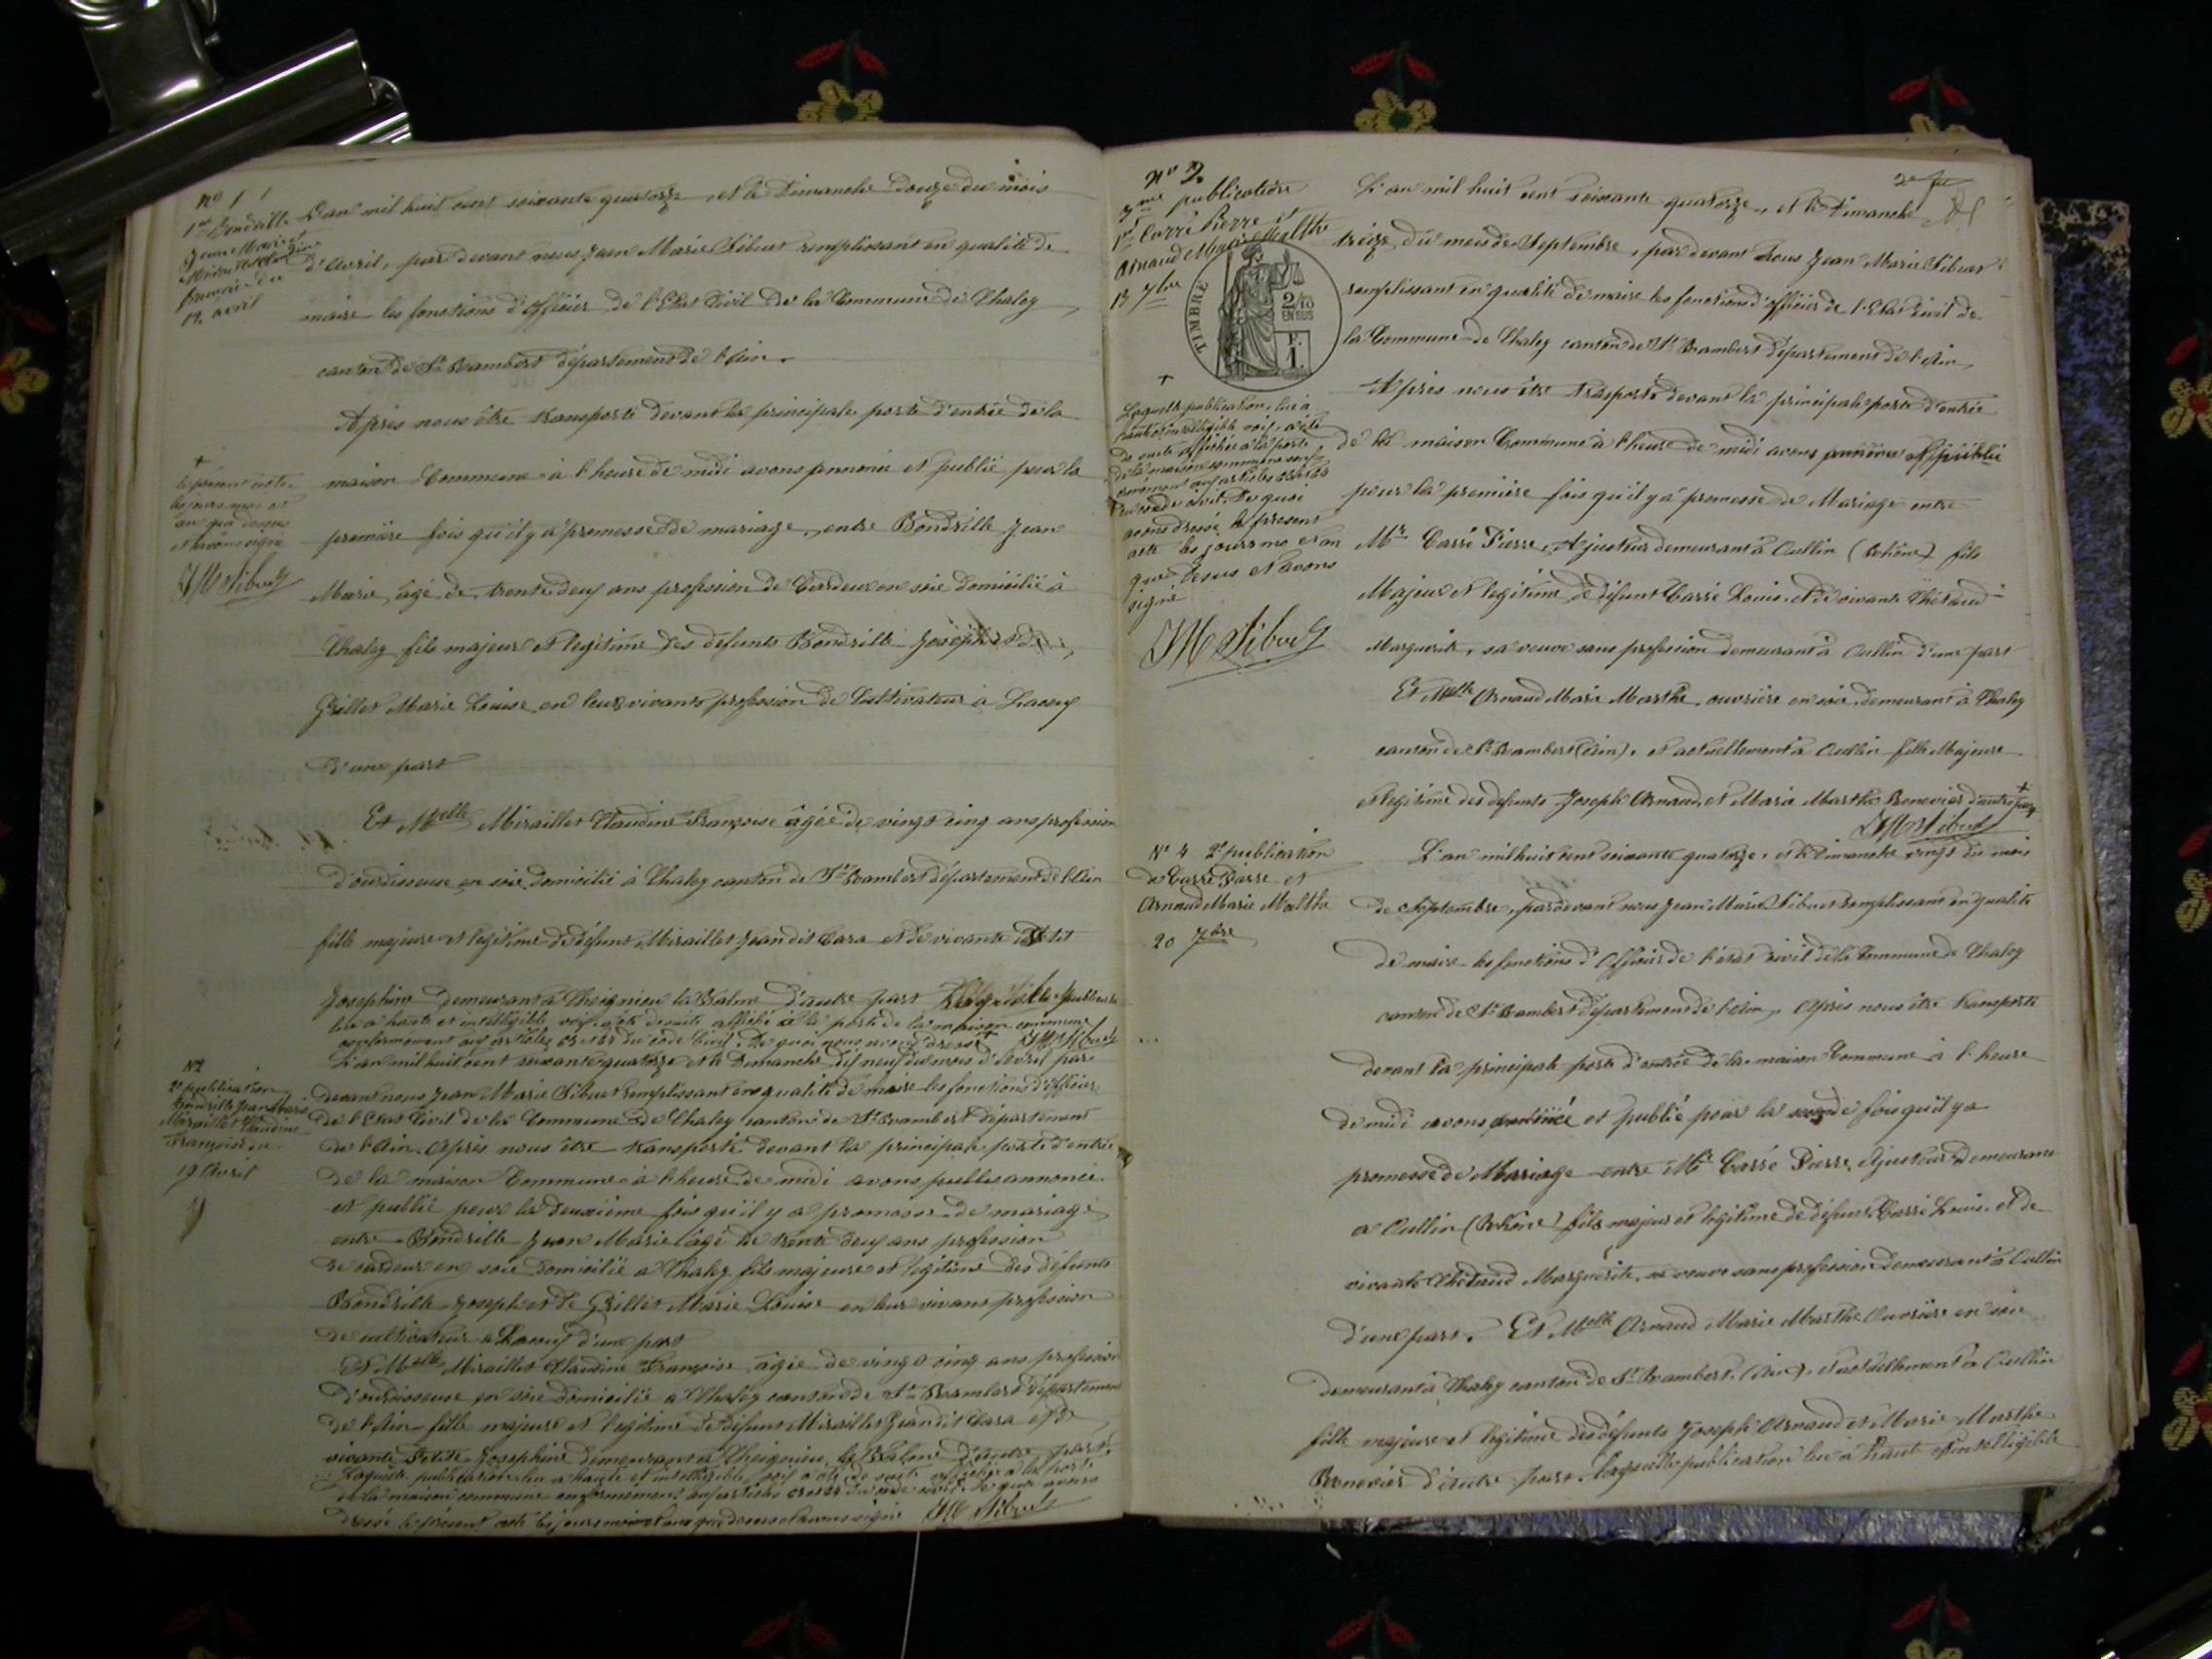 N° 1
1er Bondrille
Jean Marie et
Miraillet Claudine
Françoise du
12. avril
L'an mil huit cent soixante quatorze, et le Dimanche douze du mois
d'Avril, par devant nous Jean Marie Sibuet remplissant en qualité de
maire les fonctions d'Officier de l'Etat Civil de la Commune de Chaley,
canton de St Rambert département de l'Ain.
Après nous être transporté devant la principale porte d'entrée de la
maison Commune à l'heure de midi avons annoncé et publié pour la
première fois qu'il y a promesse de mariage, entre Bondrille Jean
Marie, âgé de trente deux ans profession de Cardeur en soie domicilié à
Chaley fils majeur et legitime des défunts Bondrille Joseph et de
Grillet Marie Louise en leurs vivants profession de Cultivateur à Lacoux
d'une part
Et Melle Miraillet Claudine Françoise âgée de vingt cinq ans profession
d'ourdisseuse en soie domicilié à Chaley canton de St Rambert département de l'Ain
fille majeure et legitime de défunt Miraillet Jean dit Cara et de vivante Petit
Josephine demeurant à Cheignieu la Balme d'autre part Laquelle publication
lue à haute et intelligible voix a été de suite affiché à la porte de la maison commune
conformément aux articles 63 et 64 du code Civil. De quoi nous avons dressé + JM Sibuet
+
le présent acte
les jours mois et
an que dessus
et avons signé
JM Sibuet
N° 2
2e publication
Bondrille Jean Marie
Miraillet Claudine
Françoise du
19 Avril
L'an mil huit cent soixante quatorze et le Dimanche dix neuf du mois d'Avril par
devant nous Jean Marie Sibuet remplissant en qualité de maire les fonctions d'Officier
de l'Etat Civil de la Commune de Chaley canton de St Rambert département
de l'Ain. Après nous être transporté devant la principale porte d'entrée
de la maison Commune à l'heure de midi avons publié annoncé
et publié pour la deuxième fois qu'il y a promesse de mariage
entre Bondrille Jean Marie âgé de trente deux ans profession
de cardeur en soie domicilié à Chaley fils majeure et legitime des défunts
Bondrille Joseph et de Grillet Marie Louise en leur vivant profession
de cultivateur à Lacoux d'une part
Et Melle Miraillet Claudine Françoise âgée de vingt cinq ans profession
d'ourdisseuse en soie domicilié à Chaley canton de St Rambert département
de l'Ain fille majeure et legitime de défunt Miraillet Jean dit Cara et de
vivante Petite Josephine demeurant à Cheignieu la Balme d'autre part.
Laquelle publication lue à haute et intelligible voix a été de suite affichée à la porte
de la maison commune conformément aux articles 63 et 64 du code civil. De quoi avons
dressé le présent acte les jours mois et ans que dessus et avons signé JM Sibuet
N° 3
1er Carré Pierre et
Arnaud Marie Malthe
13 7bre
TIMBRE
2/10
EN SUS
F.
1.
L'an mil huit cent soixante quatorze, et le Dimanche
treize du mois de Septembre, par devant Nous Jean Marie Sibuet
remplissant en qualité de maire les fonctions d'officier de l'Etat Civil de
la Commune de Chaley canton de St Rambert département de l'Ain,
Après nous être trasporté devant la principale porte d'entrée
de la maison Commune à l'heure de midi avons annoncé et publié
pour la première fois qu'il y a promesse de Mariage entre
Mr Carré Pierre, Ajusteur demeurant à Oullin (Rhône) fils
Majeur et legitime de défunt Carré Louis et de vivante Chétaud
Marguerite, sa veuve sans profession demeurant à Oullin d'une part
Et Melle Arnaud Marie Marthe, ouvrière en soie demeurant à Chaley
canton de St Rambert (Ain), et actuellement à Oullin fille Majeure
et legitime des défunts Joseph Arnaud, et Marie Marthe Benevier d'autre part +
JM Sibuet
+
Laquelle publication, lue à
haute et intelligible voix, a été
de suite affichée à la porte
de la maison commune conformément
aux articles 63 et 64
du code civil. De quoi
avons dressé le présent
acte les jours mo et an
que dessus et avons
signé
JM Sibuet
N° 4 2e publication
de Carré Pierre et
Arnaud Marie Malthe
20 7bre
L'an mil huit cent soixante quatorze, et le Dimanche vingt du mois
de Septembre, par devant nous Jean Marie Sibuet remplissant en qualité
de maire les fonctions d'Officier de l'état civil de la Commune de Chaley
canton de St Rambert département de l'Ain, Après nous être transporté
devant la principale porte d'entrée de la maison Commune à l'heure
de midi avons annoncé et publié pour la seconde fois qu'il y a
promesse de Mariage entre Mr Carré Pierre, Ajusteur Demeurant
à Oullin (Rhône) fils majeur et legitime de défunt Carré Louis et de
vivante Chétaud Marguerite, sa veuve sans profession demeurant à Oullin
d'une part. Et Melle Arnaud Marie Marthe Ouvrière en soie
demeurant à Chaley canton de St Rambert (Ain), et actuellement à Oullin
fille majeure et legitime des défunts Joseph Arnaud et Marie Marthe
Benevier d'autre part. Laquelle publication lue à haute et intelligible